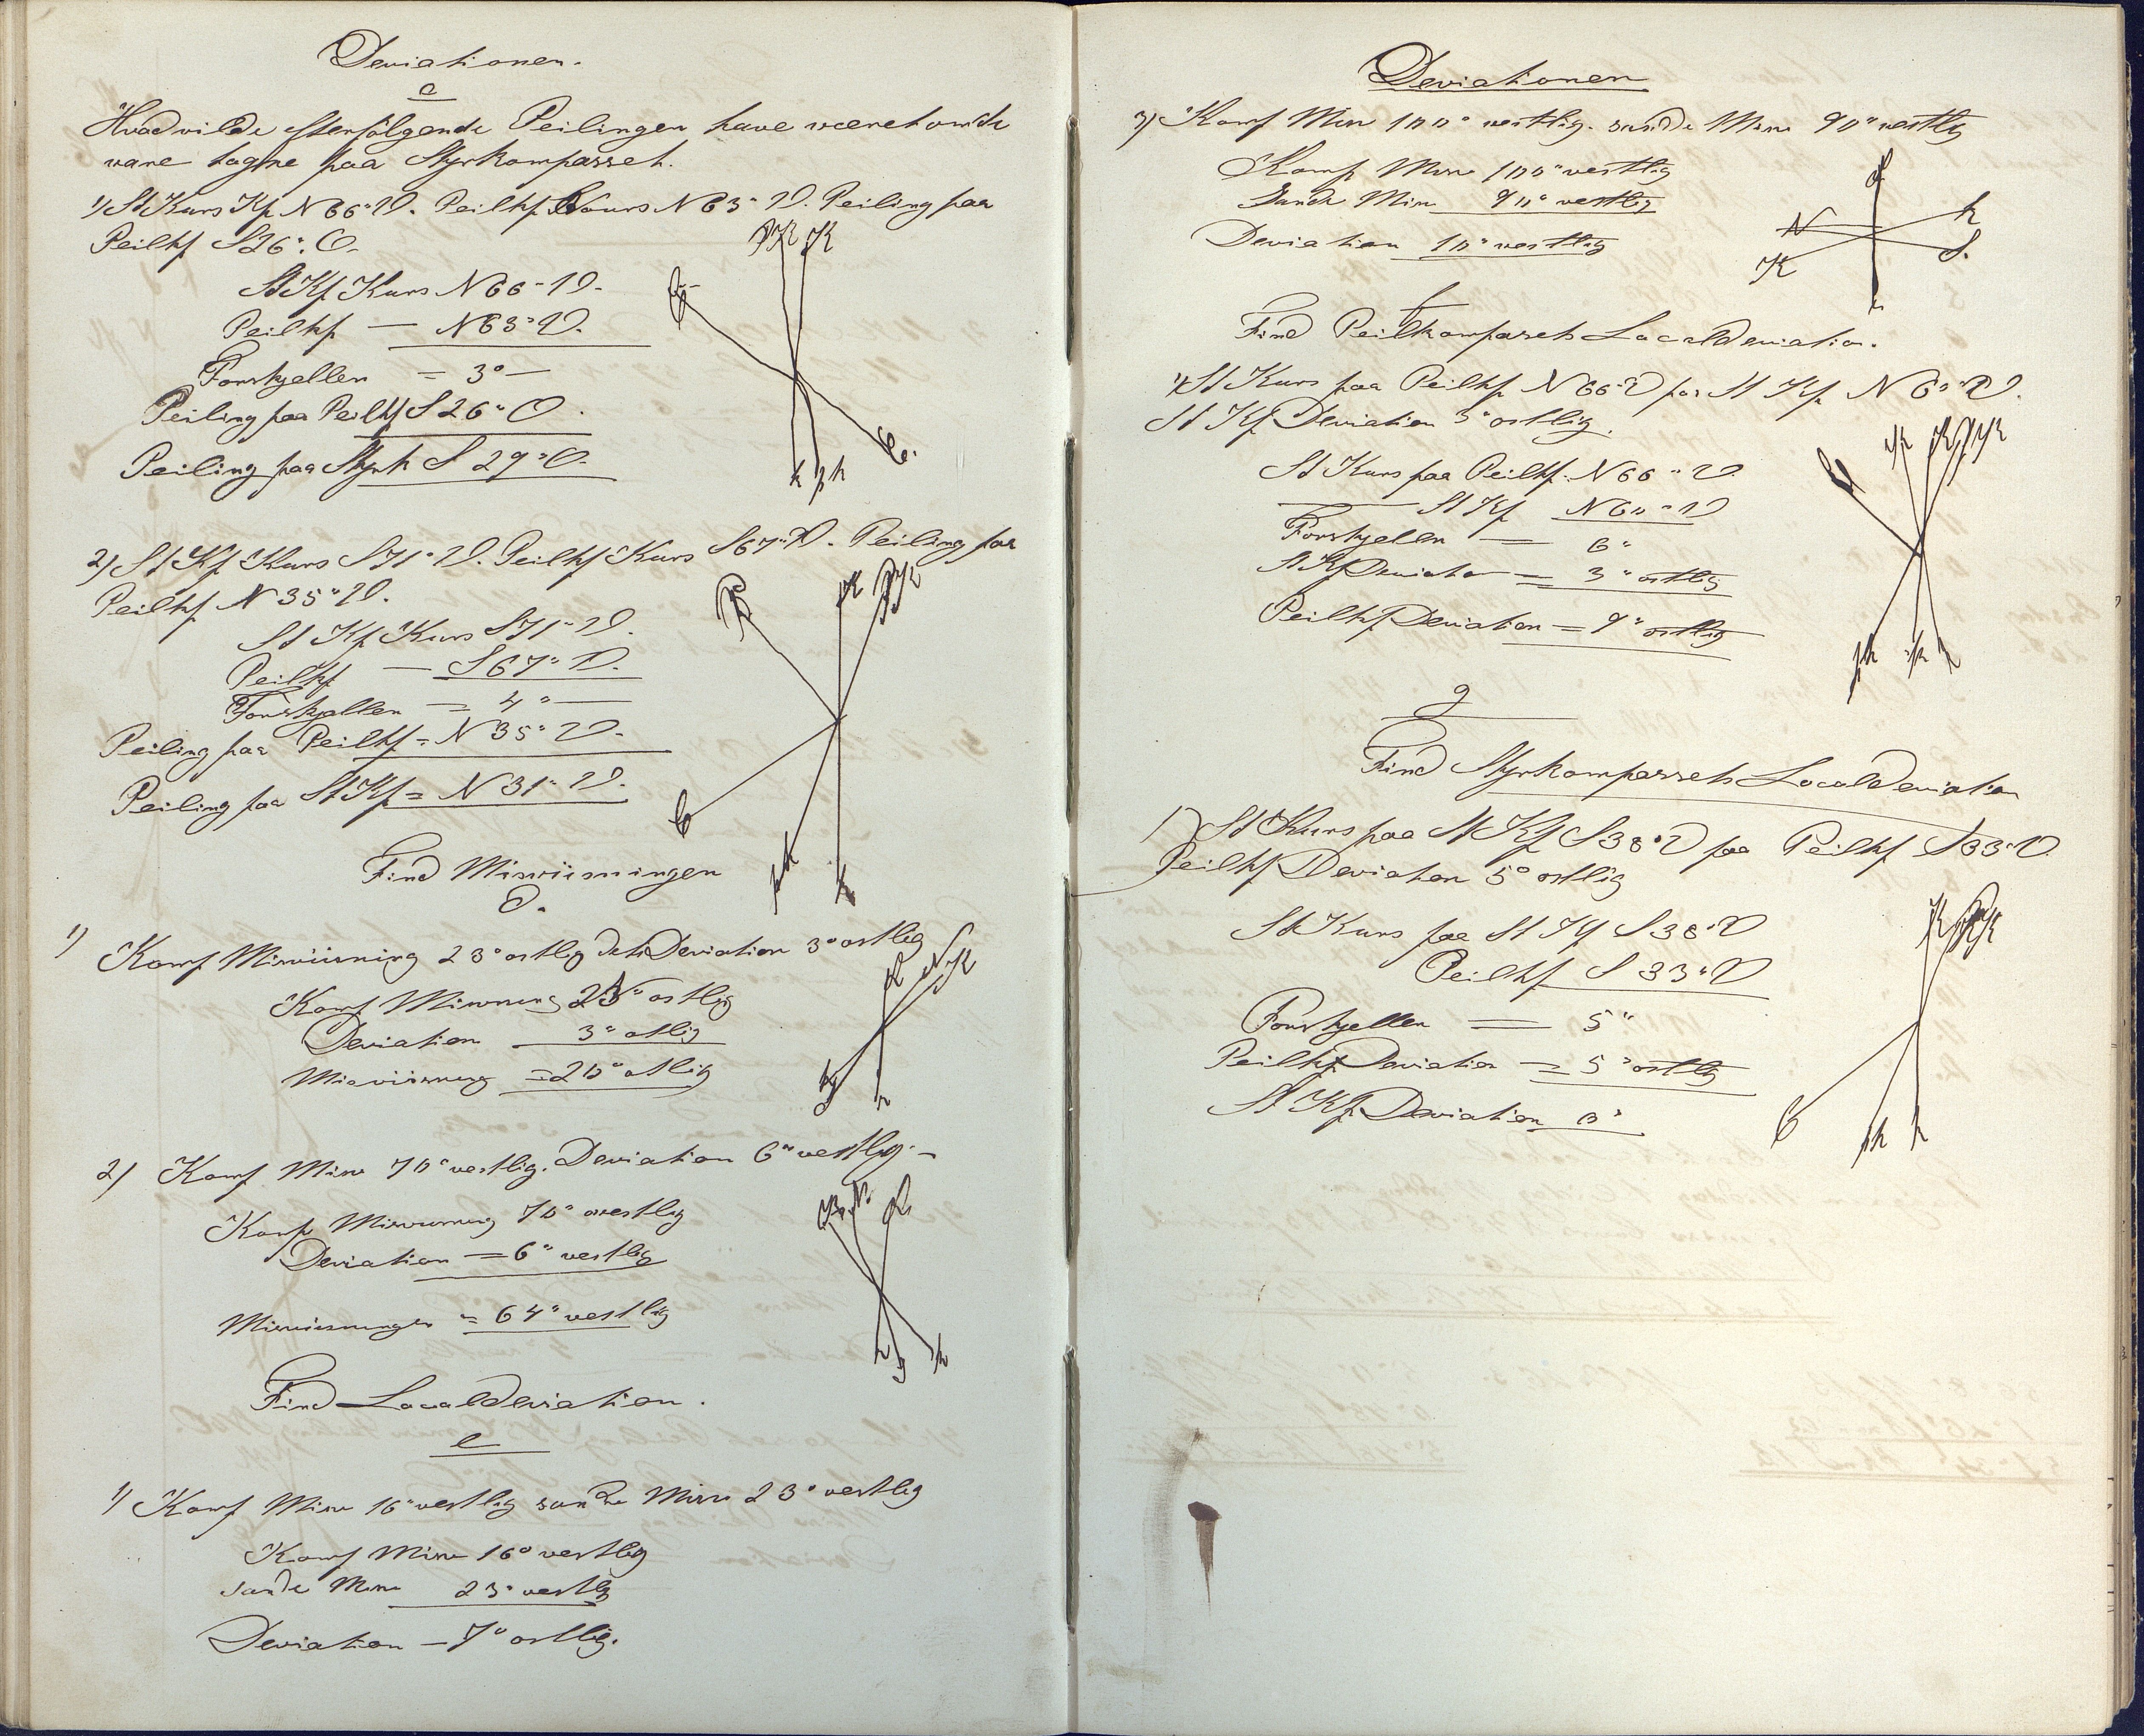 Deviationen.
c
Hvad vilde efterfølgende Peilingen have været om de
vare tagne paa Styrkompasset.
1) St Kurs Kp N 66° V. Peilkp Kurs N 63° V. Peiling paa
Peilkp S 26° O.
St Kp Kurs N 66° V.
Peilkp — N 63° V.
Forskjellen = 3° —
Peiling paa Peilkp S 26° O.
Peiling paa Styrk S 29° O.
PK K
k pk
C.
2) St Kp Kurs S 71° V. Peilkp Kurs S 67° V. Peiling paa
Peilkp N 35° V.
St Kp Kurs S 71° V.
Peilkp — S 67° V.
Forskjellen = 4° —
Peiling paa Peilkp = N 35° V.
Peiling paa St Kp = N 31° V.
P K PK
C pk k
Find Misviisningen
d.
1) Komp Misviisning 23° ostlig dets Deviation 3° ostlig
Komp Misvisning 23° ostlig
Deviation 3° ostlig
Misviisning = 20° ostlig
2) Komp Misv 70° vestlig. Deviation 6° vestlig. —
Komp Misvisning 70° vestlig
Deviation = 6° vestlig
Misviisningen = 64° vestlig
Find Localdeviation.
e
1) Komp Misv 16° vestlig sande Misv 23° vestlig
Komp Misv 16° vestlig
sande Misv 23° vestlig
Deviation — 7° ostlig.
Deviationen
3) Komp Misv 100° vestlig. sande Misv 90° vestlig
Komp Misv 100° vestlig
Sande Misv 90° vestlig
Deviation 10° vestlig
N k
K S.
f
Find Peilkompasets Localdeviation.
1) St Kurs paa Peilkp N 66° V paa St Kp N 60° V.
St Kp Deviation 3° ostlig.
St Kurs paa Peilkp. N 66° V
— St Kp N 60° V
Forskjellen = 6°
St Kp Deviation = 3° ostlig
Peilkp Deviation = 9° ostlig
K PK
pk k
g
Find Styrkompassets Localdeviation
1) St Kurs paa St Kp S 38° V paa Peilkp S 33° V.
Peilkp Deviation 5° ostlig
St Kurs paa St Kp S 38° V
Peilkp S 33° V
Forskjellen = 5°
Peilkp Deviation = 5° ostlig
St Kp. Deviation 0°
K PK
C pk k